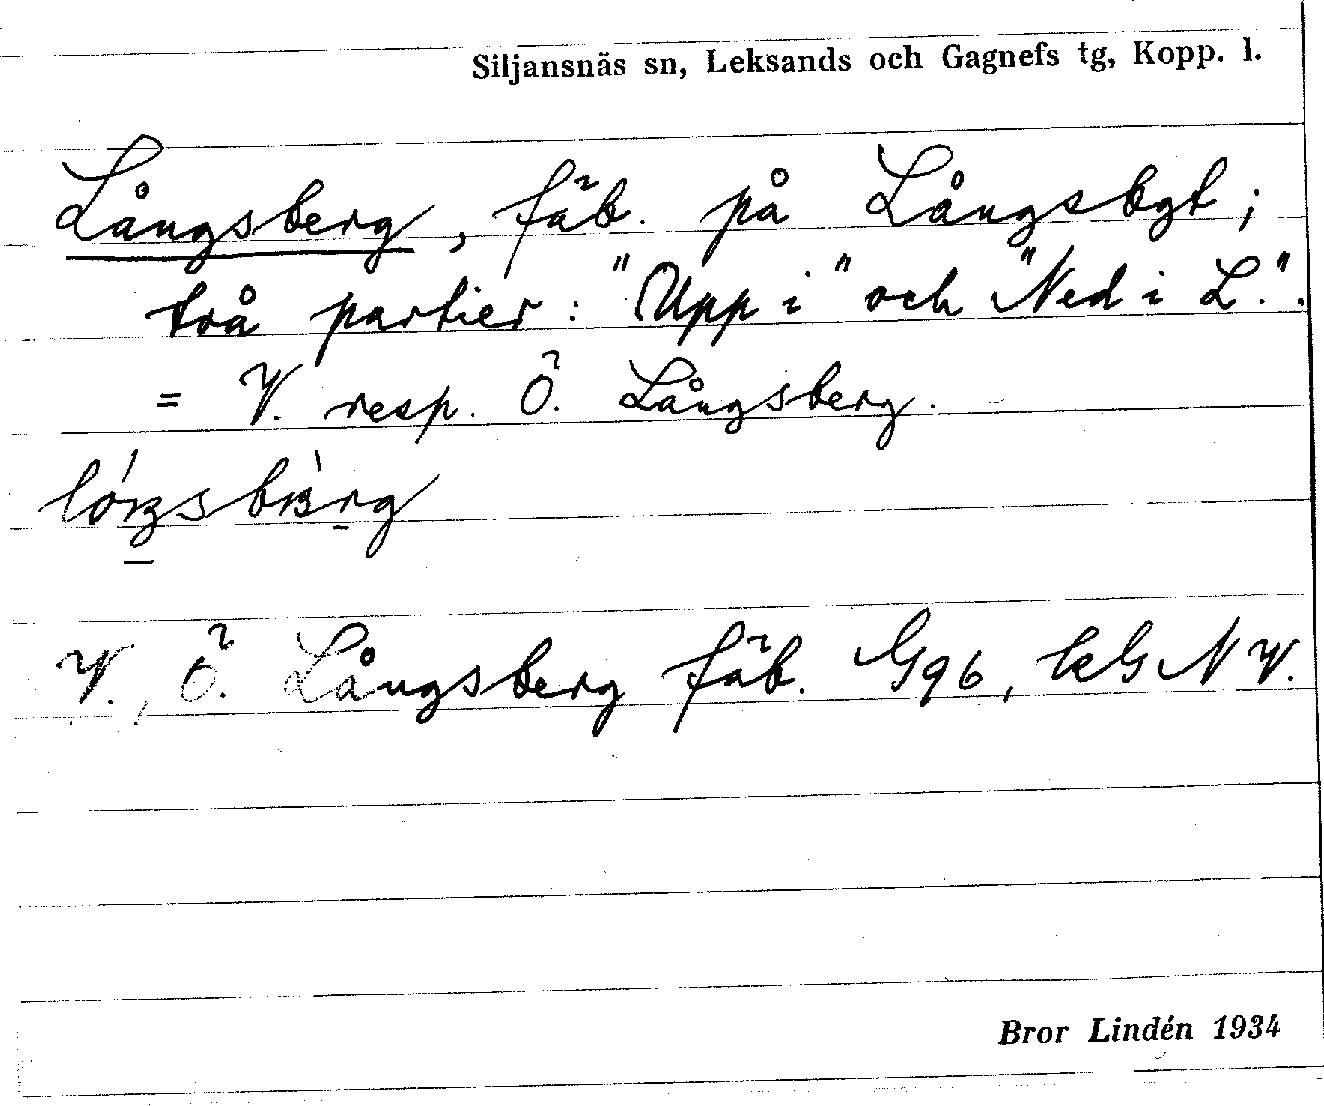 Siljansnäs sn, Leksands och Gagnefs tg, Kopp. l.
Långsberg, fäb. på Långsbgt;
två partier: "Upp i" och "Ned i L.".
= V. resp. Ö. Långsberg.
V., Ö. Långsberg fäb. G96, kG NV.
Bror Lindén 1934